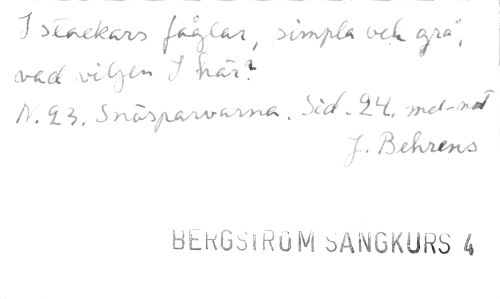 I stackars fåglar, simpla och grå,
vad viljen I här?
N. 23. Snösparvarna. Sid. 24. mel-not
J. Behrens
BERGSTRÖM SÅNGKURS 4